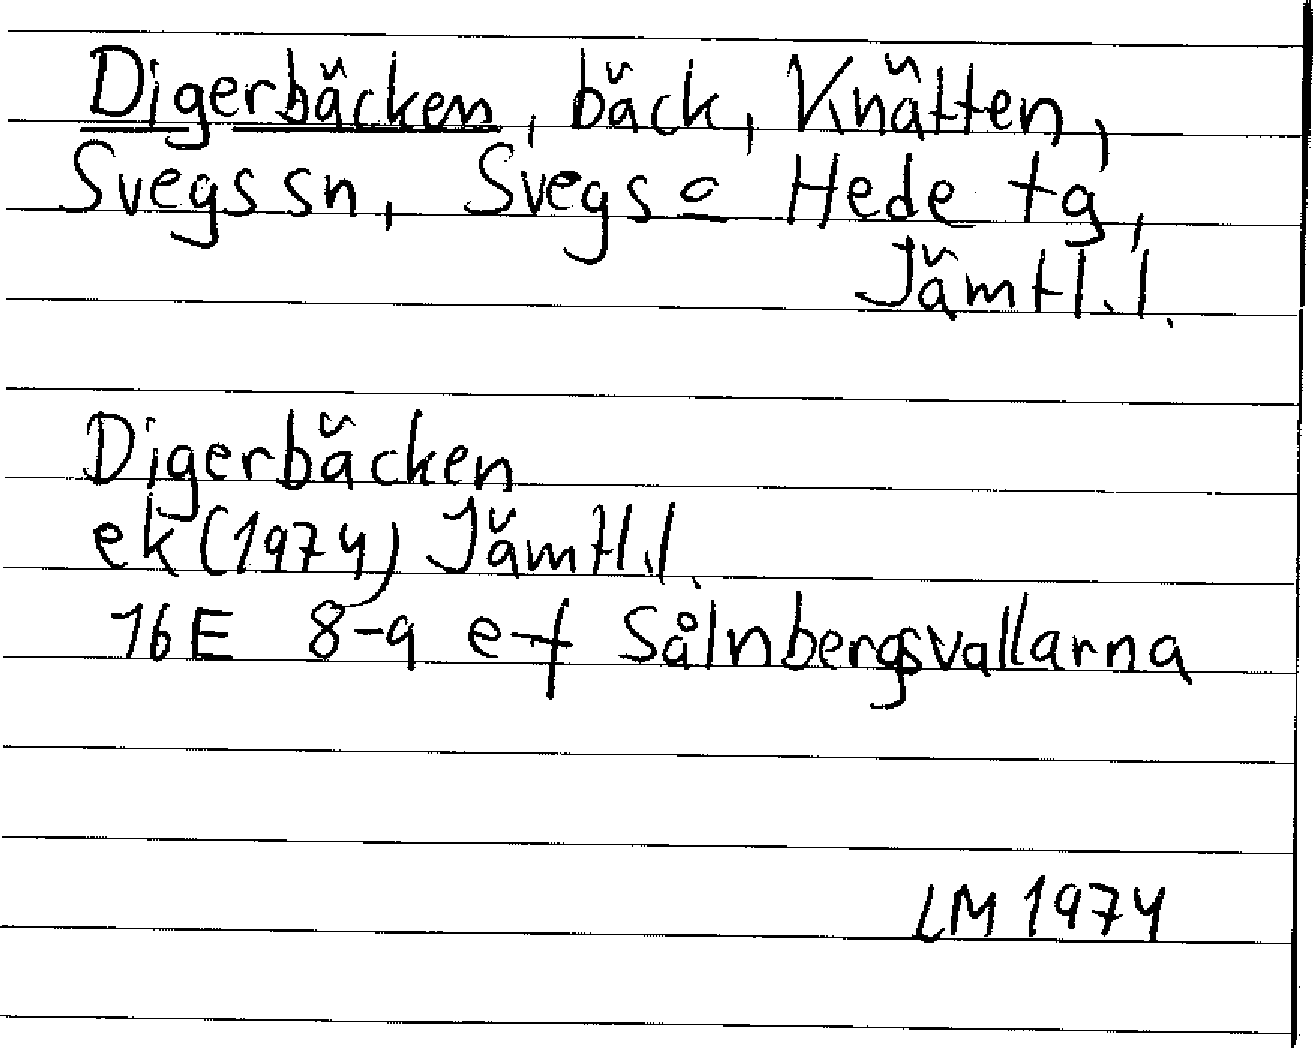 Digerbäcken, bäck, Knätten,
Svegs sn, Svegs o Hede tg,
Jämtl.l.
Digerbäcken
ek (1974) Jämtl.l.
16E 8-9 e-f Sålnbergsvallarna
LM 1974